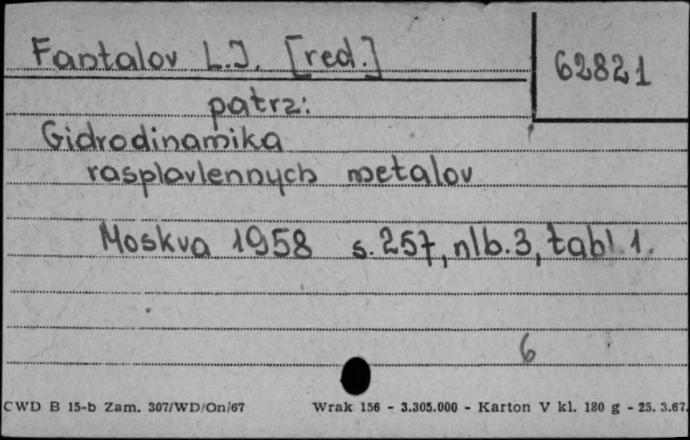 Fantalov L.I. [red.]
62821
patrz:
Gidrodinamika
rasplavlennych metalov
Moskva 1958 s. 257, nlb. 3, tabl. 1.
6
CWD B 15-b Zam. 307/WD/On/67 Wrak 156 - 3.305.000 - Karton V kl. 180 g - 25. 3.67.